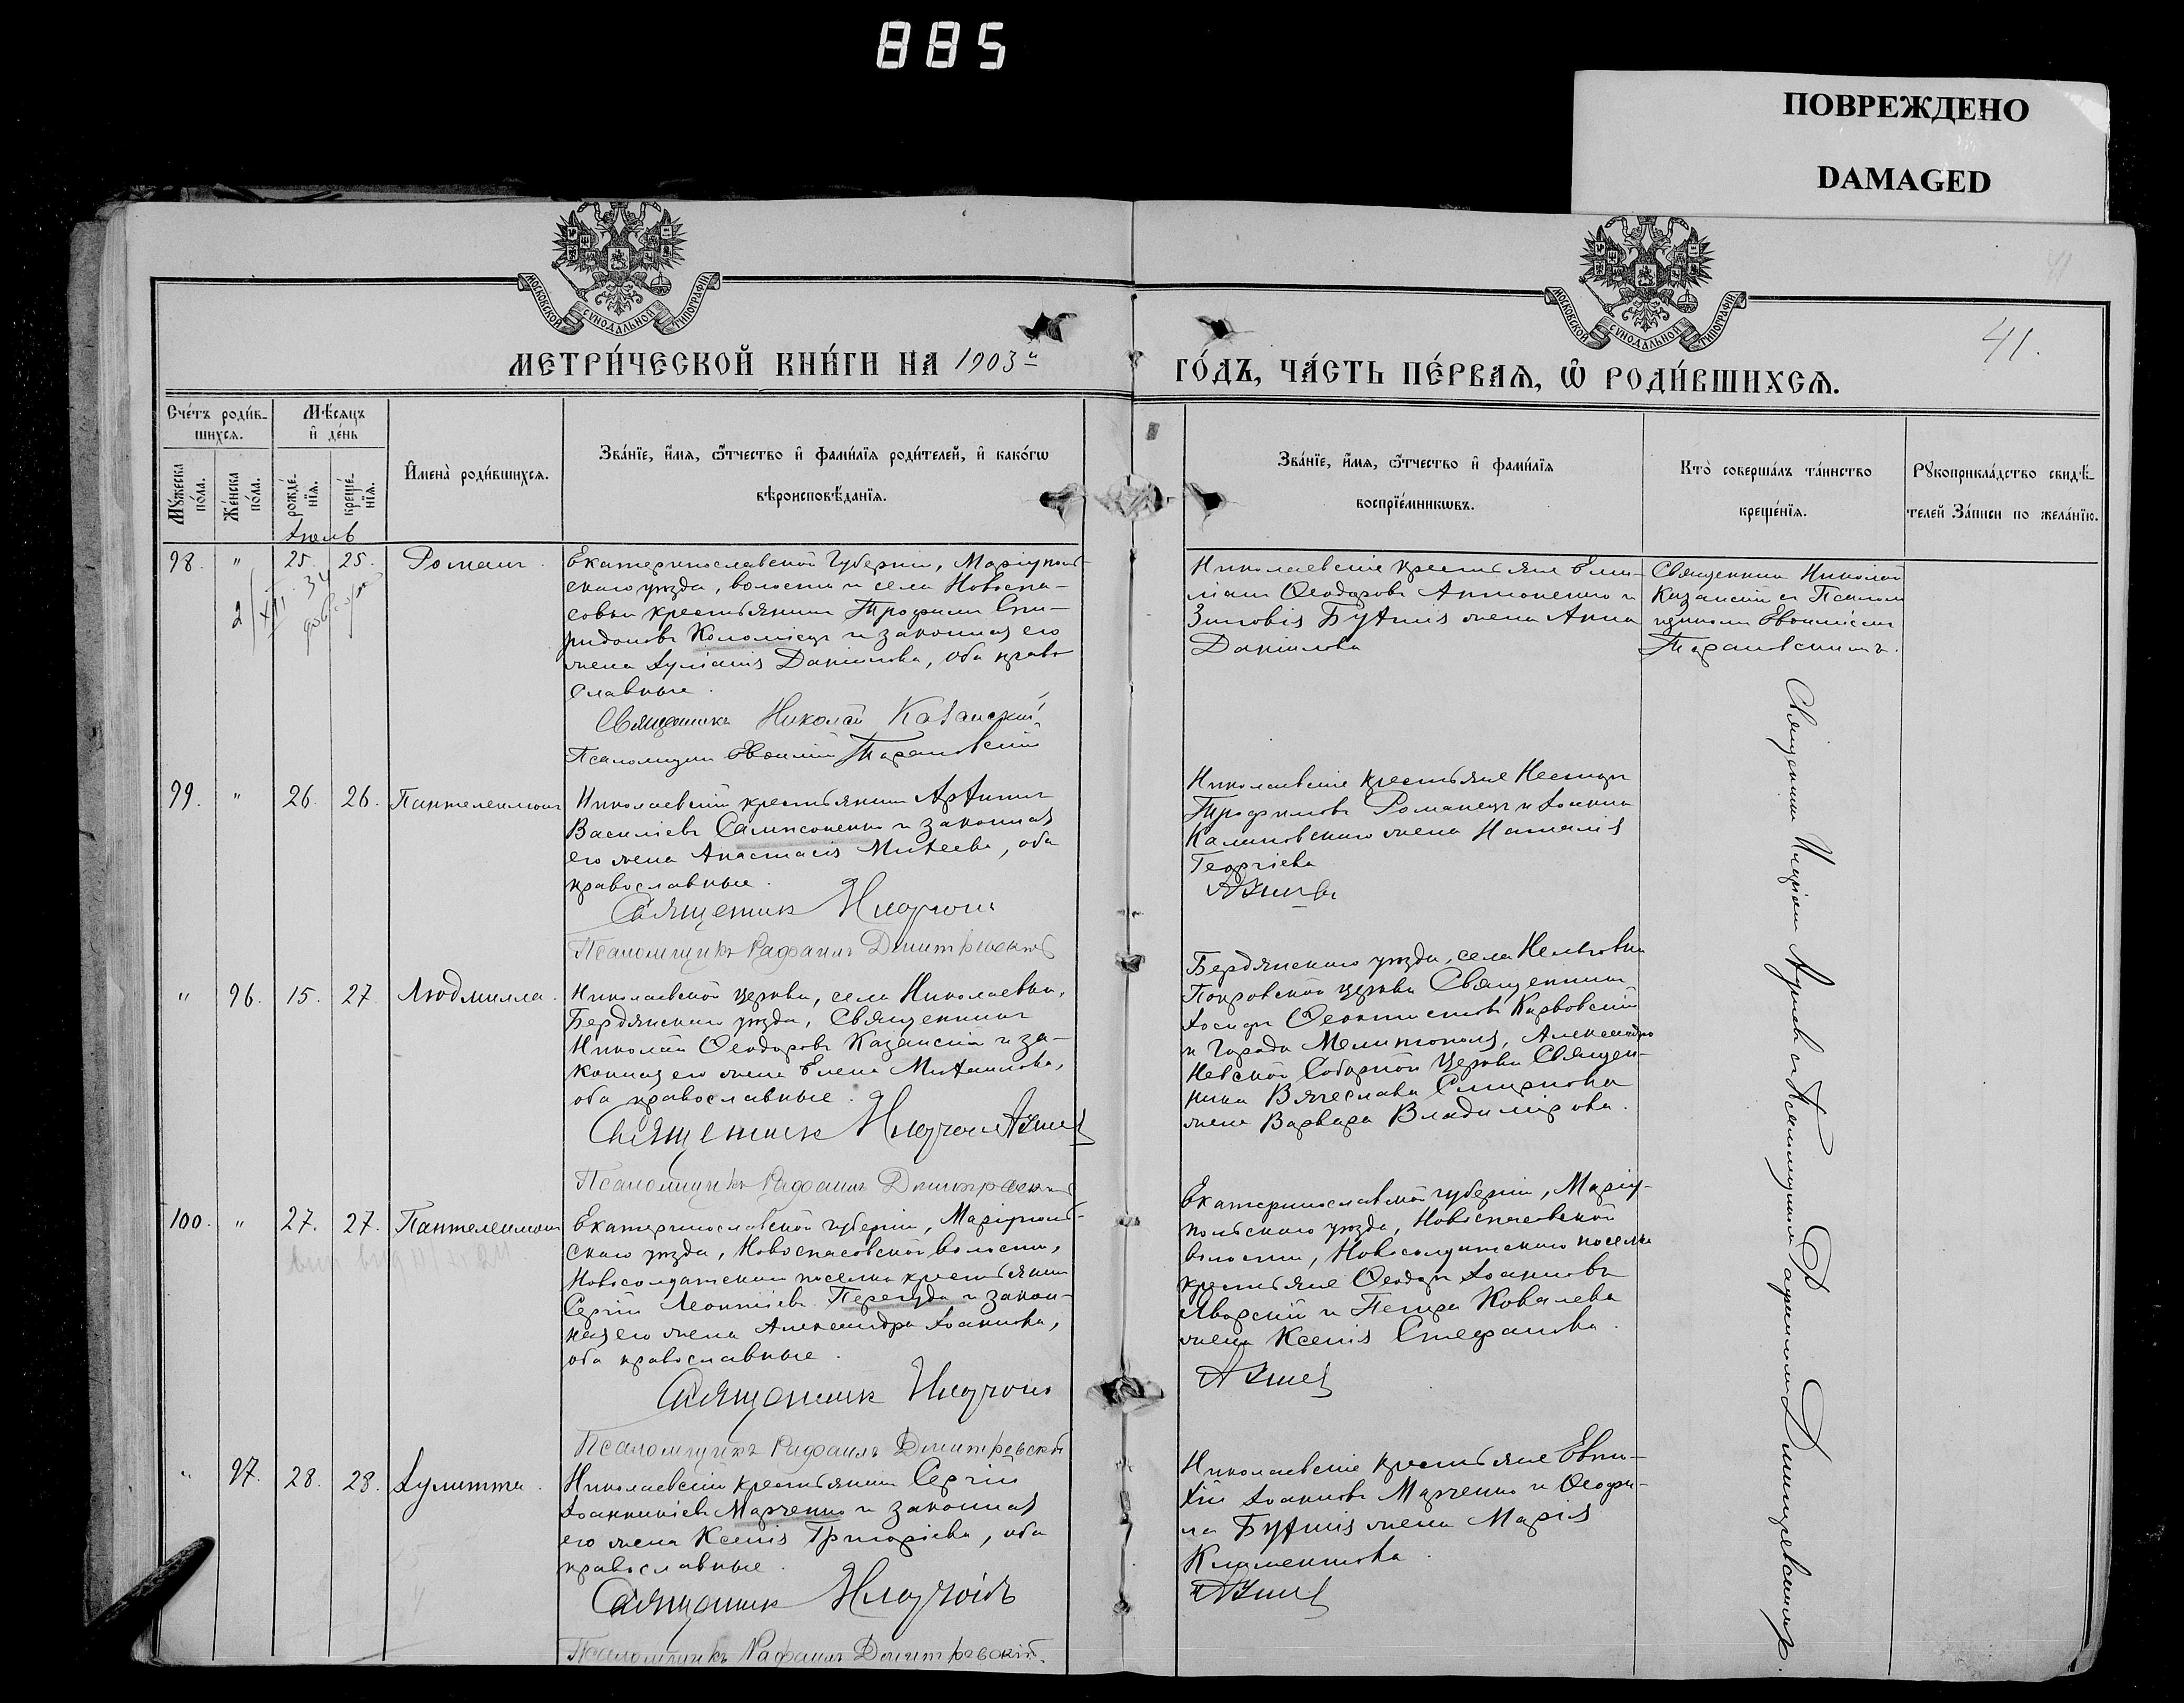 885
ПОВРЕЖДЕНО
DAMAGED
МОСКОВСКОЙ СѴНОДАЛЬНОЙ ТИПОГРАФІИ
МОСКОВСКОЙ СѴНОДАЛЬНОЙ ТИПОГРАФІИ
41.
МЕТРИ́ЧЕСКОЙ КНИ́ГИ НА 1903й
ГО́ДЪ, ЧА́СТЬ ПЕ́РВАѦ, Ѡ РОДИ́ВШИХСѦ.
Сче́тъ роди́в-
шихсѧ.
Мѣ́сѧцъ
и҆ де́нь
Мꙋ́жеска по́ла.
Же́нска по́ла.
рожде́-
нїѧ.
креще́-
нїѧ.
И҆мена̀ роди́вшихсѧ.
Зва́нїе, и҆́мѧ, ѻ҆́тчество и҆ фами́лїѧ роди́телей, и҆ како́гѡ
вѣроисповѣ́данїѧ.
Зва́нїе, и҆́мѧ, ѻ҆́тчество и҆ фами́лїѧ
воспрїе́мникѡвъ.
Кто̀ соверша́лъ та́инство
креще́нїѧ.
Рꙋкоприкла́дство свидѣ́-
телей За́писи по жела́нїю.
Іюль
98. " 25. 25. Романъ.
Екатеринославской губерніи, Маріуполь-
скаго уѣзда, волости и села Новоспа-
совки крестьянинъ Трофимъ Спи-
ридоновъ Коломіецъ и законная его
жена Іуліанія Даніилова, оба право-
славные.
Священникъ Николай Казанскій
Псаломщикъ Евѳимій Тарановскій
Николаевскіе крестьяне Еми-
ліанъ Ѳеодоровъ Антоненко и
Зиновія Бутнія жена Анна
Даніилова
Священникъ Николай
Казанскій съ Псалом
щикомъ Евѳиміемъ
Тарановскимъ.
99. " 26. 26. Пантелеимонъ
Николаевскій крестьянинъ
Василіевъ Самисоненко и законная
его жена Анастасія Михеева, оба
православные.
Священник
Псаломщикъ Рафаилъ Димитревскій
Николаевскіе крестьяне Несторъ
Трофимовъ Романецъ и Іоанна
Калиновскаго жена Наталія
Георгіева
" 96. 15. 27. Людмилла.
Николаевской церкви, села Николаевки,
Бердянскаго уѣзда, Священникъ
Николай Ѳеодоровъ Казанскій и за-
конная его жена Елена Михаилова,
оба православные.
Священник
Псаломщикъ Рафаилъ Димитревскій
Бердянскаго уѣзда, села
Покровской церкви Священникъ
Іосифъ Ѳеоктистовъ Карвовскій
и города Мелитополя, Александро
Невской Соборной церкви Священ-
ника Вячеслава Смирнова
жена Варвара Владимірова.
100. " 27. 27. Пантелеимонъ
Екатеринославской губерніи, Маріуполь-
скаго уѣзда, Новоспасовской волости,
Новосолдатскаго поселка крестьянинъ
Сергій Леонтіевъ Перегуда и закон-
ная его жена Александра Іоаннова,
оба православные.
Священник
Псаломщикъ Рафаилъ Димитревскій
Екатеринославской губерніи, Маріу-
польскаго уѣзда, Новоспасовской
волости, Новосолдатскаго поселка
крестьяне Ѳеодоръ Іоанновъ
Яворскій и Петра Ковалева
жена Ксенія Стефанова.
" 97. 28. 28. Іулитта.
Николаевскій крестьянинъ Сергій
Іоанникіевъ Марченко и законная
его жена Ксенія Григоріева, оба
православные.
Священник
Псаломщикъ Рафаилъ Димитревскій.
Николаевскіе крестьяне Евти-
хій Іоанновъ Марченко и Ѳеофи-
ла Бутнія жена Марія
Климентова.
Священникъ съ Псаломщикомъ Рафаиломъ Димитревскимъ.